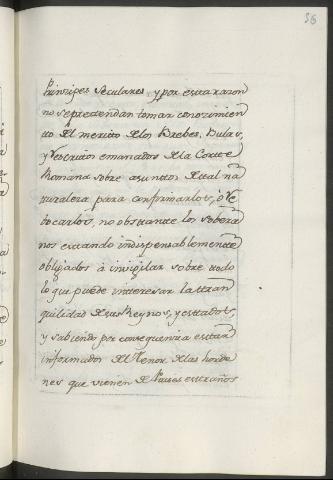 56
Prinzipes seculares y por esta razon
no se pretendan tomar conozimien
to del merito de los Brebes, Bulas,
y Rescritos emanados de la Corte
Romana sobre asuntos de tal na
turaleza para confirmarlos, ó Re
bocarlos, no obstante los sobera
nos estando indispensablemente
obligados à invigilar sobre todo
lo que puede interesar la tran
quilidad de sus Reynos, y estados,
y sabiendo por consequenzia estar
informados del tenor de las horde
nes que vienen de Paises estraños